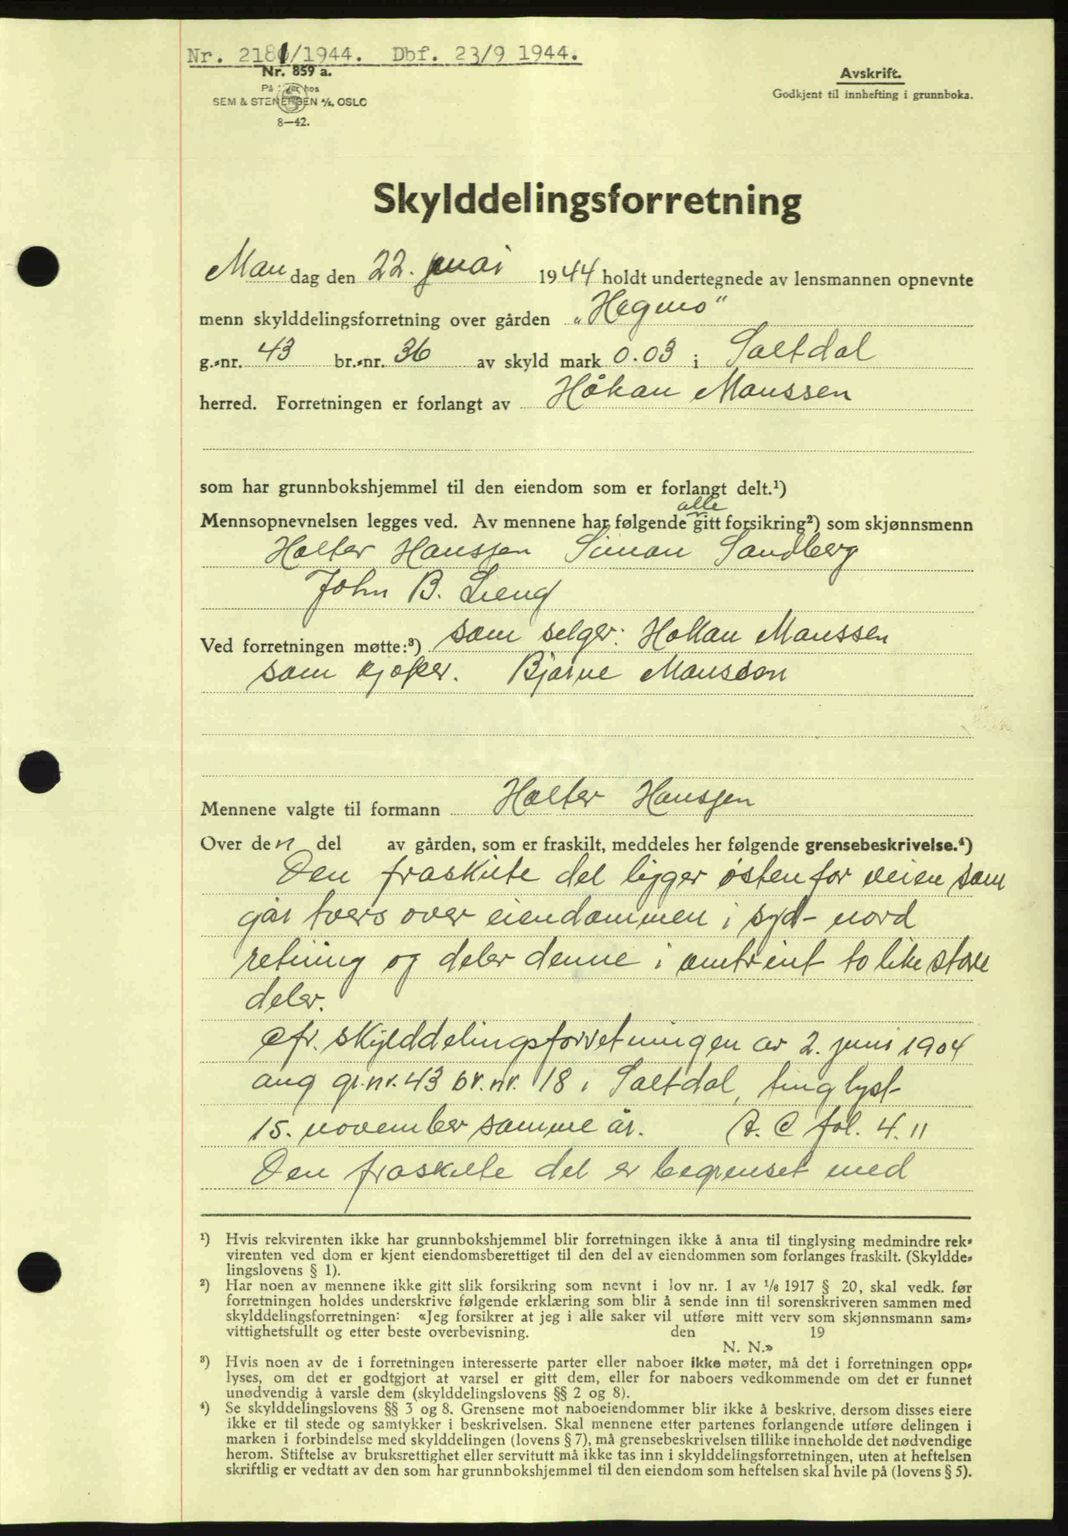 Nr. 2181/1944. Dbf. 23/9 1944.
Nr. 859 a.
På lager hos
SEM & STENERSEN A/S, OSLO
8—42.
Avskrift.
Godkjent til innhefting i grunnboka.
Skylddelingsforretning
Mandag den 22. mai 1944 holdt undertegnede av lensmannen opnevnte
menn skylddelingsforretning over gården „Hegmo"
g.-nr. 43 br.-nr. 36 av skyld mark 0.03 i Saltdal
herred. Forretningen er forlangt av Håkan Maussen
som har grunnbokshjemmel til den eiendom som er forlangt delt.¹)
alle
Mennsopnevnelsen legges ved. Av mennene har følgende gitt forsikring²) som skjønnsmenn
Halter Hanssen Simon Sandberg
John B. Lieng
Ved forretningen møtte:³) som selger: Hakan Maussen
som kjøper. Bjarne Maussen
Mennene valgte til formann Halter Hanssen
Over den del av gården, som er fraskilt, meddeles her følgende grensebeskrivelse.⁴)
Den fraskilte del ligger østenfor veien som
går tvers over eiendommen i syd- nord
retning og deler denne i omtrent to like store
deler.
Cfr. skylddelingsforretningen av 2. juni 1904
ang gr.nr. 43 br.nr. 18 i Saltdal, tinglyst
15. november samme år. A. C fol. 4.11
Den fraskilte del er begrenset med
¹) Hvis rekvirenten ikke har grunnbokshjemmel blir forretningen ikke å anta til tinglysing medmindre rek-
virenten ved dom er kjent eiendomsberettiget til den del av eiendommen som forlanges fraskilt. (Skyldde-
lingslovens § 1).
²) Har noen av mennene ikke gitt slik forsikring som nevnt i lov nr. 1 av ¹/₆ 1917 § 20, skal vedk. før
forretningen holdes underskrive følgende erklæring som blir å sende inn til sorenskriveren sammen med
skylddelingsforretningen: «Jeg forsikrer at jeg i alle saker vil utføre mitt verv som skjønnsmann sam-
vittighetsfullt og etter beste overbevisning. den 19
N. N.»
³) Hvis noen av de i forretningen interesserte parter eller naboer ikke møter, må det i forretningen opp-
lyses, om det er godtgjort at varsel er gitt dem, eller for naboers vedkommende om det er funnet
unødvendig å varsle dem (skylddelingslovens §§ 2 og 8).
⁴) Se skylddelingslovens §§ 3 og 8. Grensene mot naboeiendommer blir ikke å beskrive, dersom disses eiere
ikke er til stede og samtykker i beskrivelsen. Skal mennene etter partenes forlangende utføre delingen i
marken i forbindelse med skylddelingen (lovens § 7), må grensebeskrivelsen tillike inneholde det nødvendige
herom. Stiftelse av bruksrettighet eller servitutt må ikke tas inn i skylddelingsforretningen, uten at heftelsen
skriftlig er vedtatt av den som har grunnbokshjemmel til den eiendom som heftelsen skal hvile på (lovens § 5).